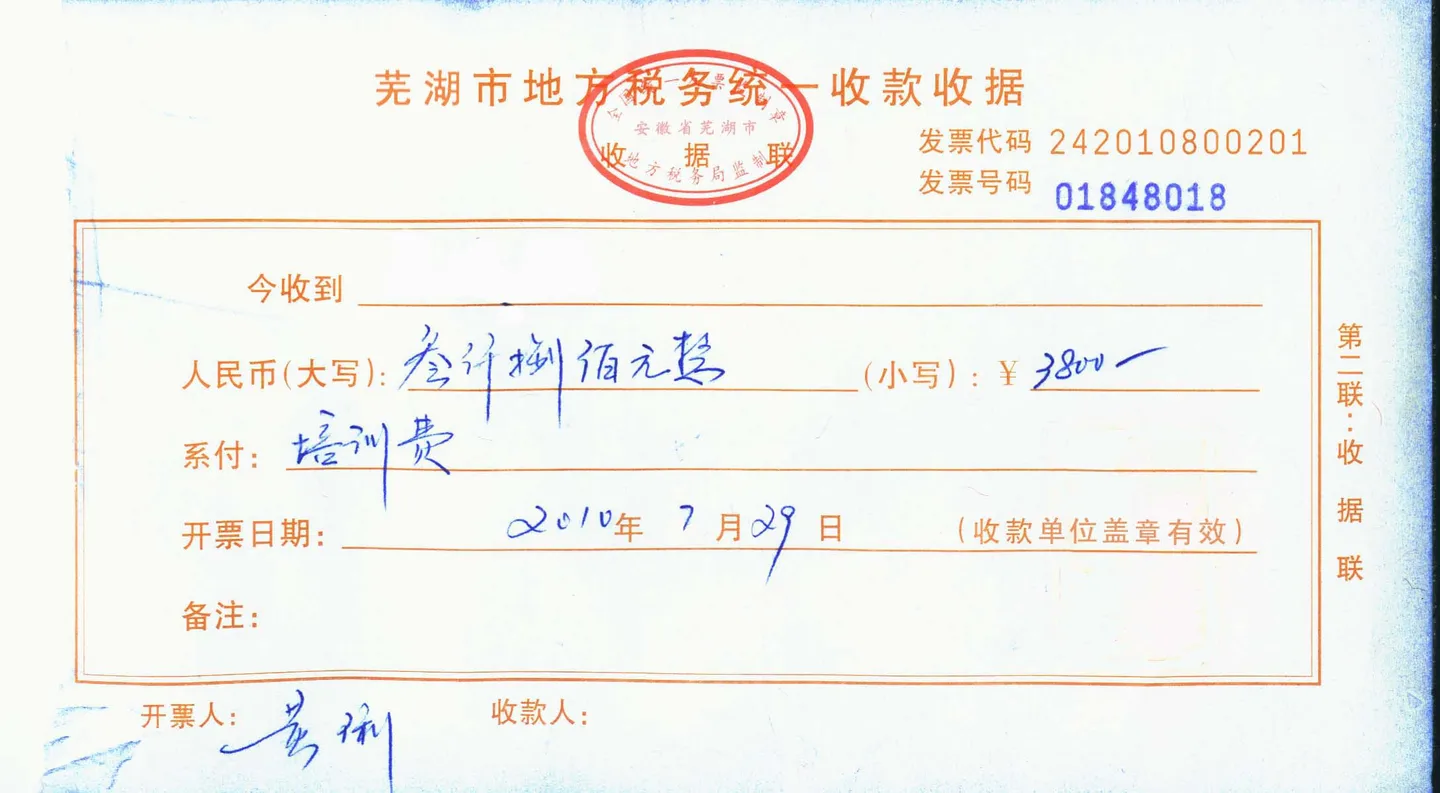 芜湖市地方税务统一收款收据
全国统一发票监制章
安徽省芜湖市
地方税务局监制
收据联
发票代码 242010800201
发票号码 01848018
今收到
人民币(大写): 叁仟捌佰元整 (小写): ¥ 3800—
系付: 培训费
开票日期: 2010年 7月29日 (收款单位盖章有效)
备注:
开票人: 黄琍 收款人:
第二联:收据联